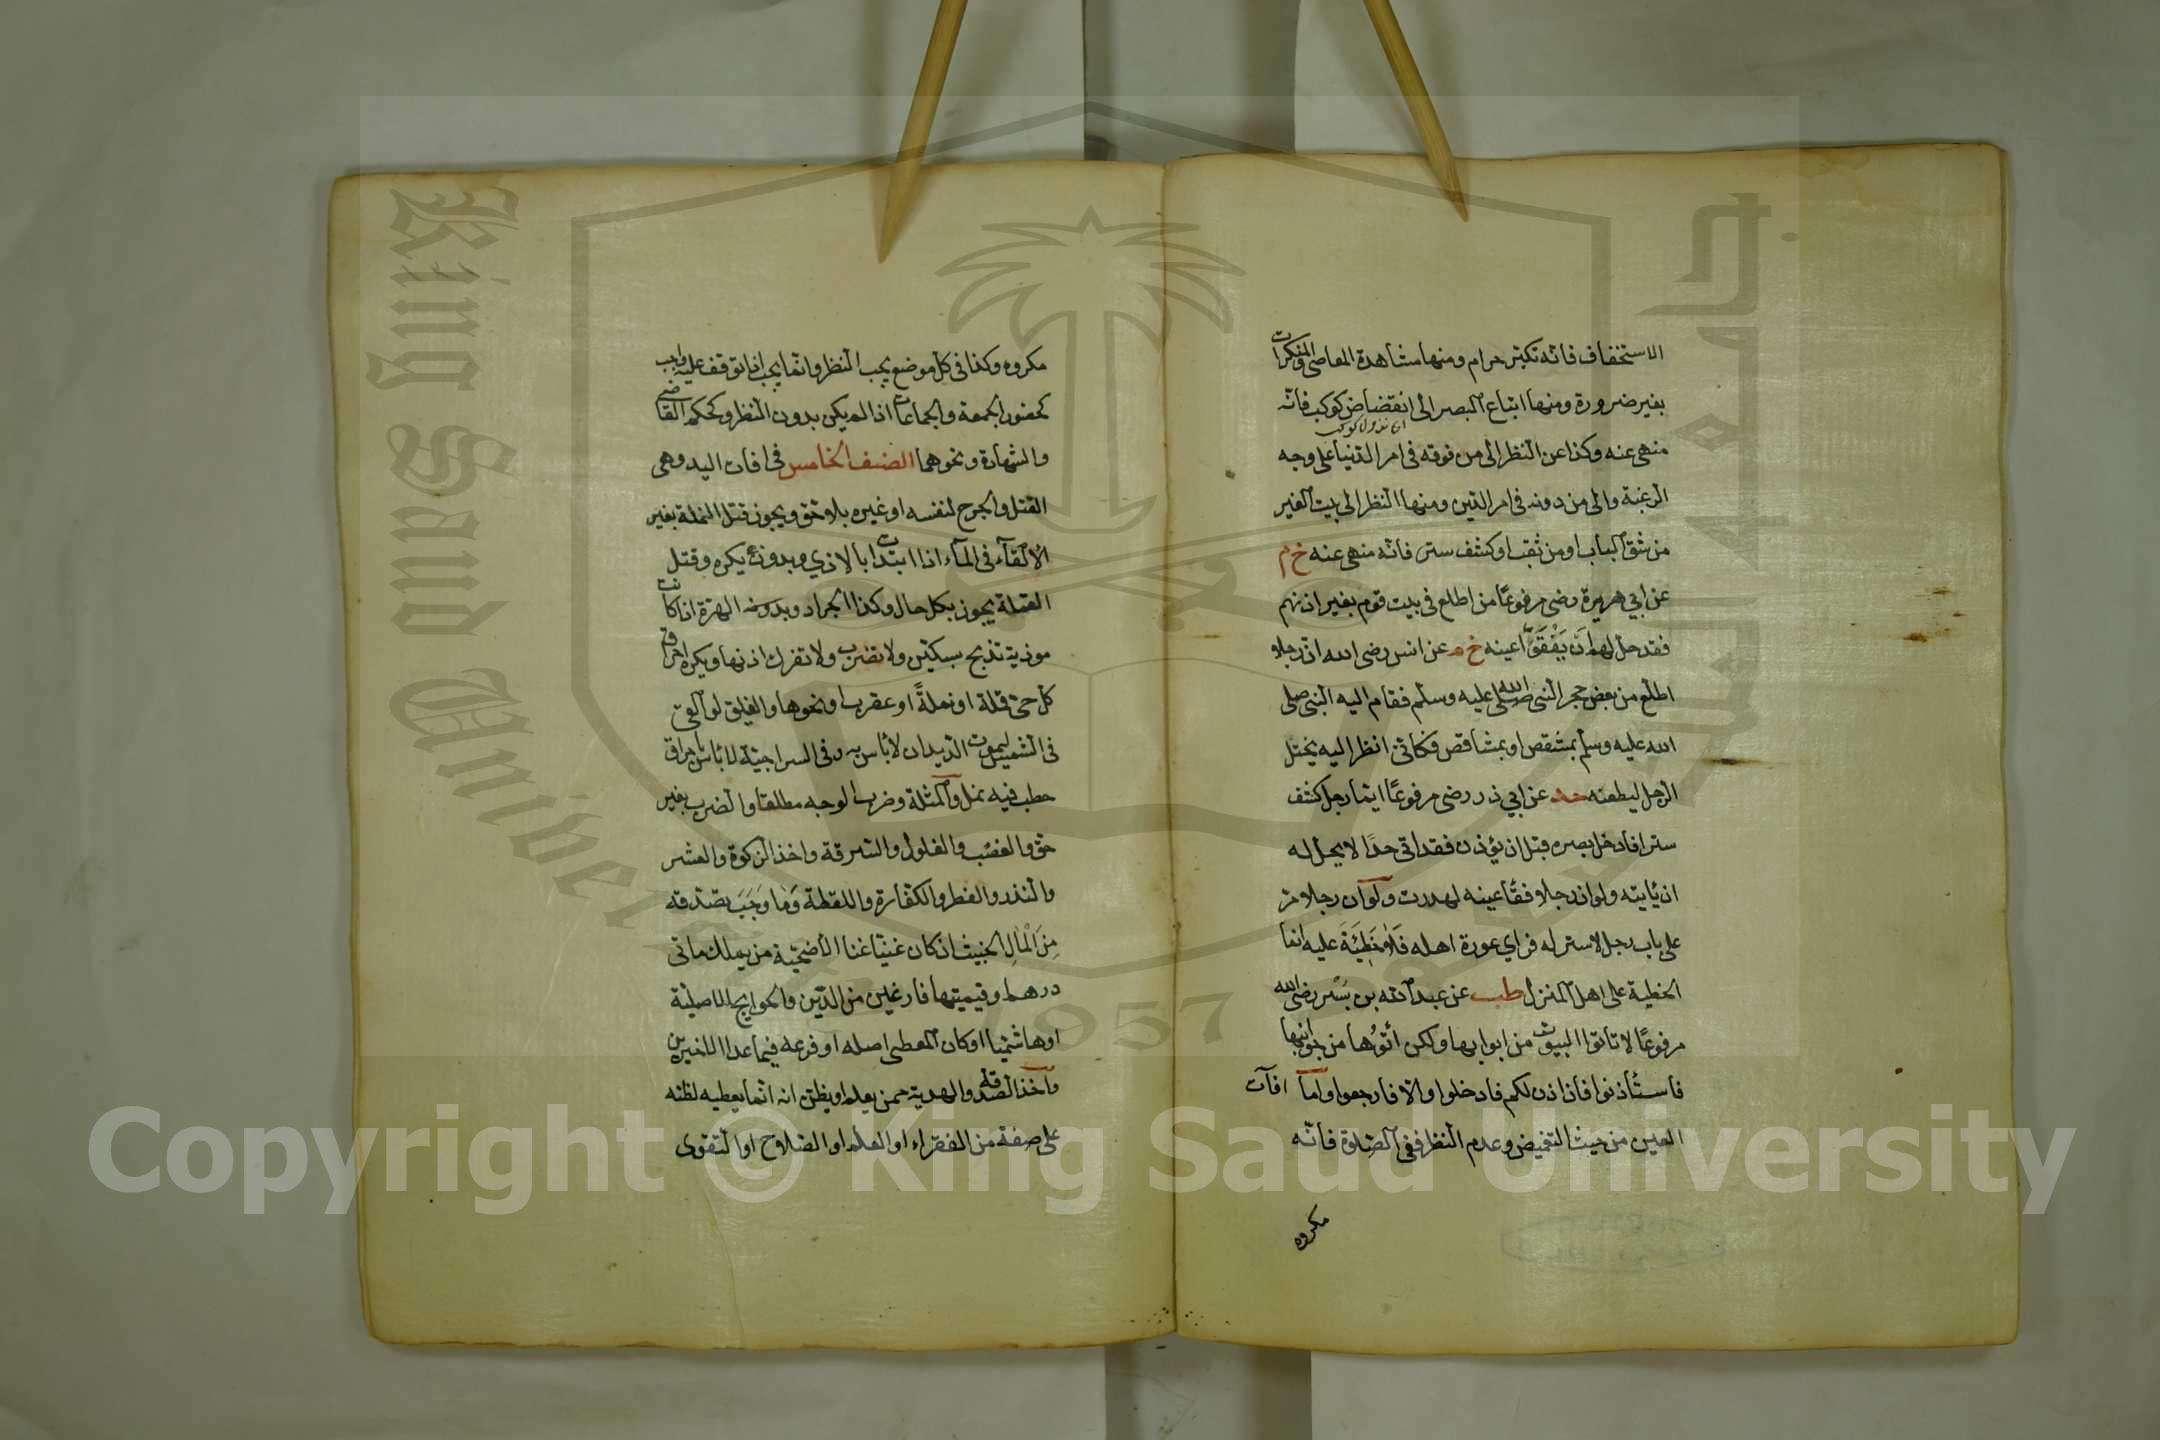 الاستخفاف فانه تكبر حرام ومنها مشاهدة المعاصى والمنكرات
بغير ضرورة ومنها اتباع البصر الى انقضاض كوكب فانه
منهى عنه وكذا عن النظر الى من فوقه فى امر الدنيا على وجه
الرغبة والى من دونه فى امر الدين ومنها النظر الى بيت الغير
من شق الباب او من ثقب او كشف ستر فانه منهى عنه خ م
عن ابي هريرة رضى مرفوعًا من اطلع فى بيت قوم بغير اذنهم
فقد حل لهم ان يَفْقَؤُا عينه خ م عن انس رضى الله ان رجلا
اطلع من بعض حجر النبى صلى الله عليه وسلم فقام اليه النبى صلى
الله عليه وسلم بمشقص او بمشاقص فكانى انظر اليه يختل
الرجل ليطعنه حد عن ابي ذر رضى مرفوعًا ايما رجل كشف
سترا فادخل بصره قبل ان يؤذن فقد اتى حدًا لا يحل له
ان يأتيه ولو ان رجلا فقأ عينه لهدرت ولو ان رجلا مر
على باب رجل لا ستر له فراى عورة اهله فَلَا خَطِيْئَةَ عليه انما
الخطية على اهل المنزل طب عن عبد الله بن بسر رضى الله
مرفوعًا لا تاتوا البيوت من ابوابها ولكن ائتُوها من جوانبها
فاستُأذنوا فان اذن لكم فادخلوا والا فارجعوا واما افات
العين من حيث التغميض وعدم النظر ففى الصلوة فانه
مكروه
مكروه وكذا فى كل موضع يجب النظر وانما يجب اذا توقف عليه واجب
كحضور الجمعة والجماعات اذا لم يكن بدون النظر وكحكم القاضى
والشهادة ونحوهما الصنف الخامس فى افات اليد وهى
القتل والجرح لنفسه او غيره بلا حق ويجوز قتل النملة بغير
الالقآء فى المآء اذا ابتدات بالاذي وبدونه يكره وقتل
القملة يجوز بكل حال وكذا الجراد وبدونه الهرة اذا كانت
موذية تذبح بسكين ولا تضرب ولا تفرك اذنها ويكره احراق
كل حى قملة او نملةً او عقربا ونحوها والفيلق لو القى
فى الشمس ليموت الديدان لا بأس به وفى السراجية لا بأس باحراق
حطب فيه نمل والمثلة وضرب الوجه مطلقا والضرب بغير
حق والغصب والغلول والسرقة واخذ الزكوة والعشر
والنذر والفطر والكفارة واللقطة وَمَا وَجَبَ تصدقه
مِنَ الْمَالِ الخبيث ان كان غنيًا غنا الأضحية من يملك ماتى
درهم او قيمتها فارغين من الدين والحوايج الاصلية
او هاشميا او كان المعطى اصله او فرعه فيما عدا الاخيرين
واخذ الصدقة والهدية ممن يعلم او يظن انه انما يعطيه لظنه
على صفة من الفقراء او العلم او الصلاح او التقوى
King Saud University
1957
Copyright © King Saud University